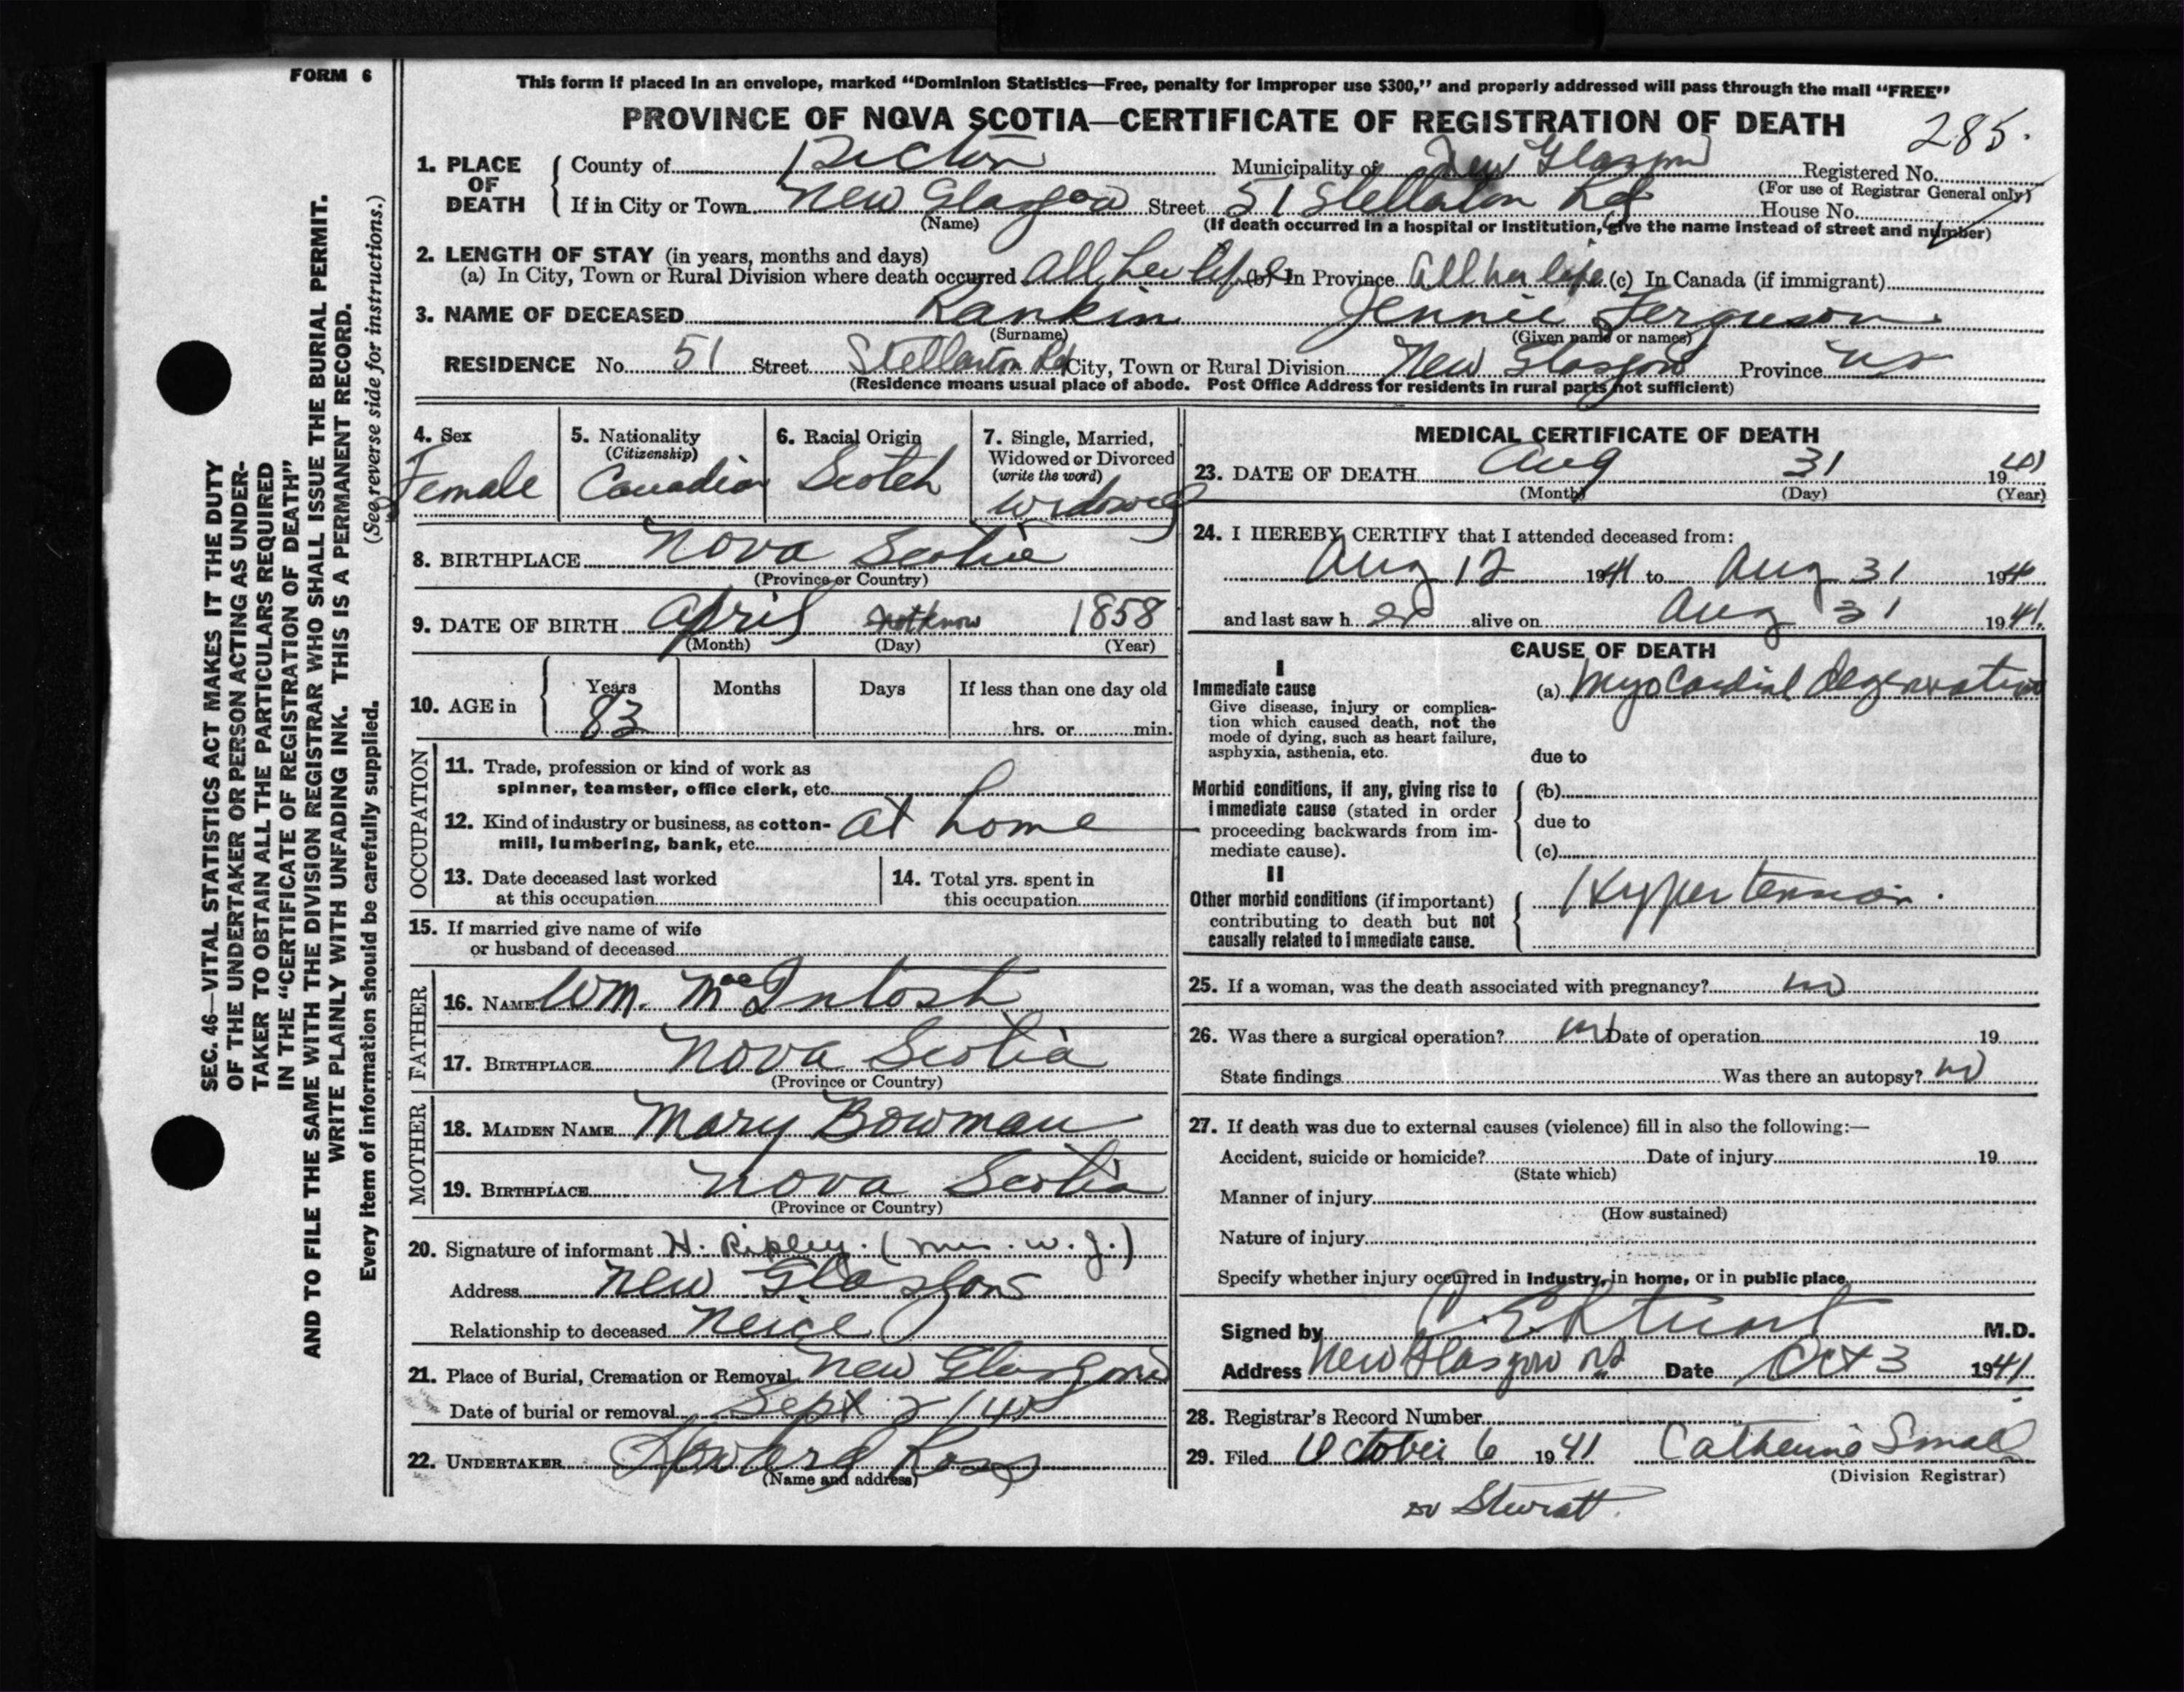 FORM 6
This form if placed in an envelope, marked “Dominion Statistics—Free, penalty for improper use $300,” and properly addressed will pass through the mail “FREE”
PROVINCE OF NOVA SCOTIA—CERTIFICATE OF REGISTRATION OF DEATH 285.
1. PLACE OF DEATH County of Pictou Municipality of New Glasgow Registered No.
(For use of Registrar General only)
If in City or Town New Glasgow Street 51 Stellarton Rd House No.
(Name) (If death occurred in a hospital or institution, give the name instead of street and number)
2. LENGTH OF STAY (in years, months and days)
(a) In City, Town or Rural Division where death occurred all her life (b) In Province All her life (c) In Canada (if immigrant)
3. NAME OF DECEASED Rankin Jennie Ferguson
(Surname) (Given name or names)
RESIDENCE No. 51 Street Stellarton Rd City, Town or Rural Division New Glasgow Province NS
(Residence means usual place of abode. Post Office Address for residents in rural parts not sufficient)
4. Sex
Female
5. Nationality
(Citizenship)
Canadian
6. Racial Origin
Scotch
7. Single, Married,
Widowed or Divorced
(write the word)
Widowed
8. BIRTHPLACE Nova Scotia
(Province or Country)
9. DATE OF BIRTH April not know 1858
(Month) (Day) (Year)
10. AGE in Years Months Days If less than one day old
83 hrs. or min.
OCCUPATION
11. Trade, profession or kind of work as
spinner, teamster, office clerk, etc.
12. Kind of industry or business, as cotton- at home
mill, lumbering, bank, etc.
13. Date deceased last worked
at this occupation
14. Total yrs. spent in
this occupation
15. If married give name of wife
or husband of deceased
FATHER
16. NAME Wm. MacIntosh
17. BIRTHPLACE Nova Scotia
(Province or Country)
MOTHER
18. MAIDEN NAME Mary Bowman
19. BIRTHPLACE Nova Scotia
(Province or Country)
20. Signature of informant H. Ripley. (Mrs. W. J.)
Address New Glasgow
Relationship to deceased Neice
21. Place of Burial, Cremation or Removal New Glasgow
Date of burial or removal Sept 2
22. UNDERTAKER Howard Ross
(Name and address)
MEDICAL CERTIFICATE OF DEATH
23. DATE OF DEATH Aug 31 1941
(Month) (Day) (Year)
24. I HEREBY CERTIFY that I attended deceased from:
Aug 12 1941 to Aug 31 194
and last saw h er alive on Aug 31 1941.
CAUSE OF DEATH
I
Immediate cause
Give disease, injury or complica-
tion which caused death, not the
mode of dying, such as heart failure,
asphyxia, asthenia, etc.
(a) Myocardial degeneration
due to
Morbid conditions, if any, giving rise to
immediate cause (stated in order
proceeding backwards from im-
mediate cause).
(b)
due to
(c)
II
Other morbid conditions (if important)
contributing to death but not
causally related to immediate cause.
Hypertension.
25. If a woman, was the death associated with pregnancy? no
26. Was there a surgical operation? no Date of operation 19
State findings Was there an autopsy? no
27. If death was due to external causes (violence) fill in also the following:—
Accident, suicide or homicide? Date of injury 19
(State which)
Manner of injury
(How sustained)
Nature of injury
Specify whether injury occurred in Industry, in home, or in public place
Signed by C E Stuart M.D.
Address New Glasgow NS Date Oct 3 1941
28. Registrar's Record Number
29. Filed October 6 1941 Catherine Small
(Division Registrar)
Dr Stewart.
SEC. 46—VITAL STATISTICS ACT MAKES IT THE DUTY
OF THE UNDERTAKER OR PERSON ACTING AS UNDER-
TAKER TO OBTAIN ALL THE PARTICULARS REQUIRED
IN THE “CERTIFICATE OF REGISTRATION OF DEATH”
AND TO FILE THE SAME WITH THE DIVISION REGISTRAR WHO SHALL ISSUE THE BURIAL PERMIT.
WRITE PLAINLY WITH UNFADING INK. THIS IS A PERMANENT RECORD.
Every item of information should be carefully supplied. (See reverse side for instructions.)